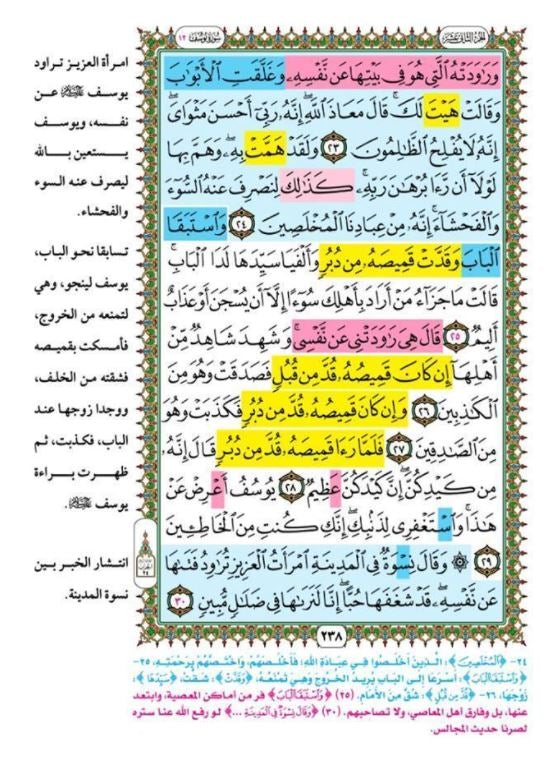 الجزء الثاني عشر
سورة يوسف ١٢
وَرَٰوَدَتْهُ ٱلَّتِى هُوَ فِى بَيْتِهَا عَن نَّفْسِهِۦ وَغَلَّقَتِ ٱلْأَبْوَٰبَ
وَقَالَتْ هَيْتَ لَكَ ۚ قَالَ مَعَاذَ ٱللَّهِ ۖ إِنَّهُۥ رَبِّىٓ أَحْسَنَ مَثْوَاىَ ۖ
إِنَّهُۥ لَا يُفْلِحُ ٱلظَّٰلِمُونَ ٢٣ وَلَقَدْ هَمَّتْ بِهِۦ ۖ وَهَمَّ بِهَا
لَوْلَآ أَن رَّءَا بُرْهَٰنَ رَبِّهِۦ ۚ كَذَٰلِكَ لِنَصْرِفَ عَنْهُ ٱلسُّوٓءَ
وَٱلْفَحْشَآءَ ۚ إِنَّهُۥ مِنْ عِبَادِنَا ٱلْمُخْلَصِينَ ٢٤ وَٱسْتَبَقَا
ٱلْبَابَ وَقَدَّتْ قَمِيصَهُۥ مِن دُبُرٍ وَأَلْفَيَا سَيِّدَهَا لَدَا ٱلْبَابِ ۚ
قَالَتْ مَا جَزَآءُ مَنْ أَرَادَ بِأَهْلِكَ سُوٓءًا إِلَّآ أَن يُسْجَنَ أَوْ عَذَابٌ
أَلِيمٌ ٢٥ قَالَ هِىَ رَٰوَدَتْنِى عَن نَّفْسِى ۚ وَشَهِدَ شَاهِدٌ مِّنْ
أَهْلِهَآ إِن كَانَ قَمِيصُهُۥ قُدَّ مِن قُبُلٍ فَصَدَقَتْ وَهُوَ مِنَ
ٱلْكَٰذِبِينَ ٢٦ وَإِن كَانَ قَمِيصُهُۥ قُدَّ مِن دُبُرٍ فَكَذَبَتْ وَهُوَ
مِنَ ٱلصَّٰدِقِينَ ٢٧ فَلَمَّا رَءَا قَمِيصَهُۥ قُدَّ مِن دُبُرٍ قَالَ إِنَّهُۥ
مِن كَيْدِكُنَّ ۖ إِنَّ كَيْدَكُنَّ عَظِيمٌ ٢٨ يُوسُفُ أَعْرِضْ عَنْ
هَٰذَا ۚ وَٱسْتَغْفِرِى لِذَنۢبِكِ ۖ إِنَّكِ كُنتِ مِنَ ٱلْخَاطِـِٔينَ
٢٩ ۞ وَقَالَ نِسْوَةٌ فِى ٱلْمَدِينَةِ ٱمْرَأَتُ ٱلْعَزِيزِ تُرَٰوِدُ فَتَىٰهَا
عَن نَّفْسِهِۦ ۖ قَدْ شَغَفَهَا حُبًّا ۖ إِنَّا لَنَرَىٰهَا فِى ضَلَٰلٍ مُّبِينٍ ٣٠
٢٣٨
امرأة العزيز تراود
يوسف عن
نفسه، ويوسف
يستعين بالله
ليصرف عنه السوء
والفحشاء.
تسابقا نحو الباب،
يوسف لينجو، وهي
لتمنعه من الخروج،
فأمسكت بقميصه
فشقته من الخلف،
ووجدا زوجها عند
الباب، فكذبت، ثم
ظهرت براءة
يوسف
انتشار الخبر بين
نسوة المدينة.
٢٤- ﴿ٱلْمُخْلَصِينَ﴾: الَّذِينَ أَخْلَصُوا فِي عِبَادَةِ اللهِ؛ فَأَخْلَصَهُمْ، وَاخْتَصَّهُمْ بِرَحْمَتِهِ، ٢٥-
﴿وَٱسْتَبَقَا ٱلْبَابَ﴾: أَسْرَعَا إِلَى البَابِ يُرِيدُ الخُرُوجَ وَهِيَ تَمْنَعُهُ، ﴿وَقَدَّتْ﴾: شَقَّتْ، ﴿سَيِّدَهَا﴾:
زَوْجَهَا، ٢٦- ﴿قُدَّ مِن قُبُلٍ﴾: شُقَّ مِنَ الأَمَامِ. (٢٥) ﴿وَٱسْتَبَقَا ٱلْبَابَ﴾ فر من أماكن المعصية، وابتعد
عنها، بل وفارق أهل المعاصي، ولا تصاحبهم. (٣٠) ﴿وَقَالَ نِسْوَةٌ فِى ٱلْمَدِينَةِ ...﴾ لو رفع الله عنا ستره
لصرنا حديث المجالس.